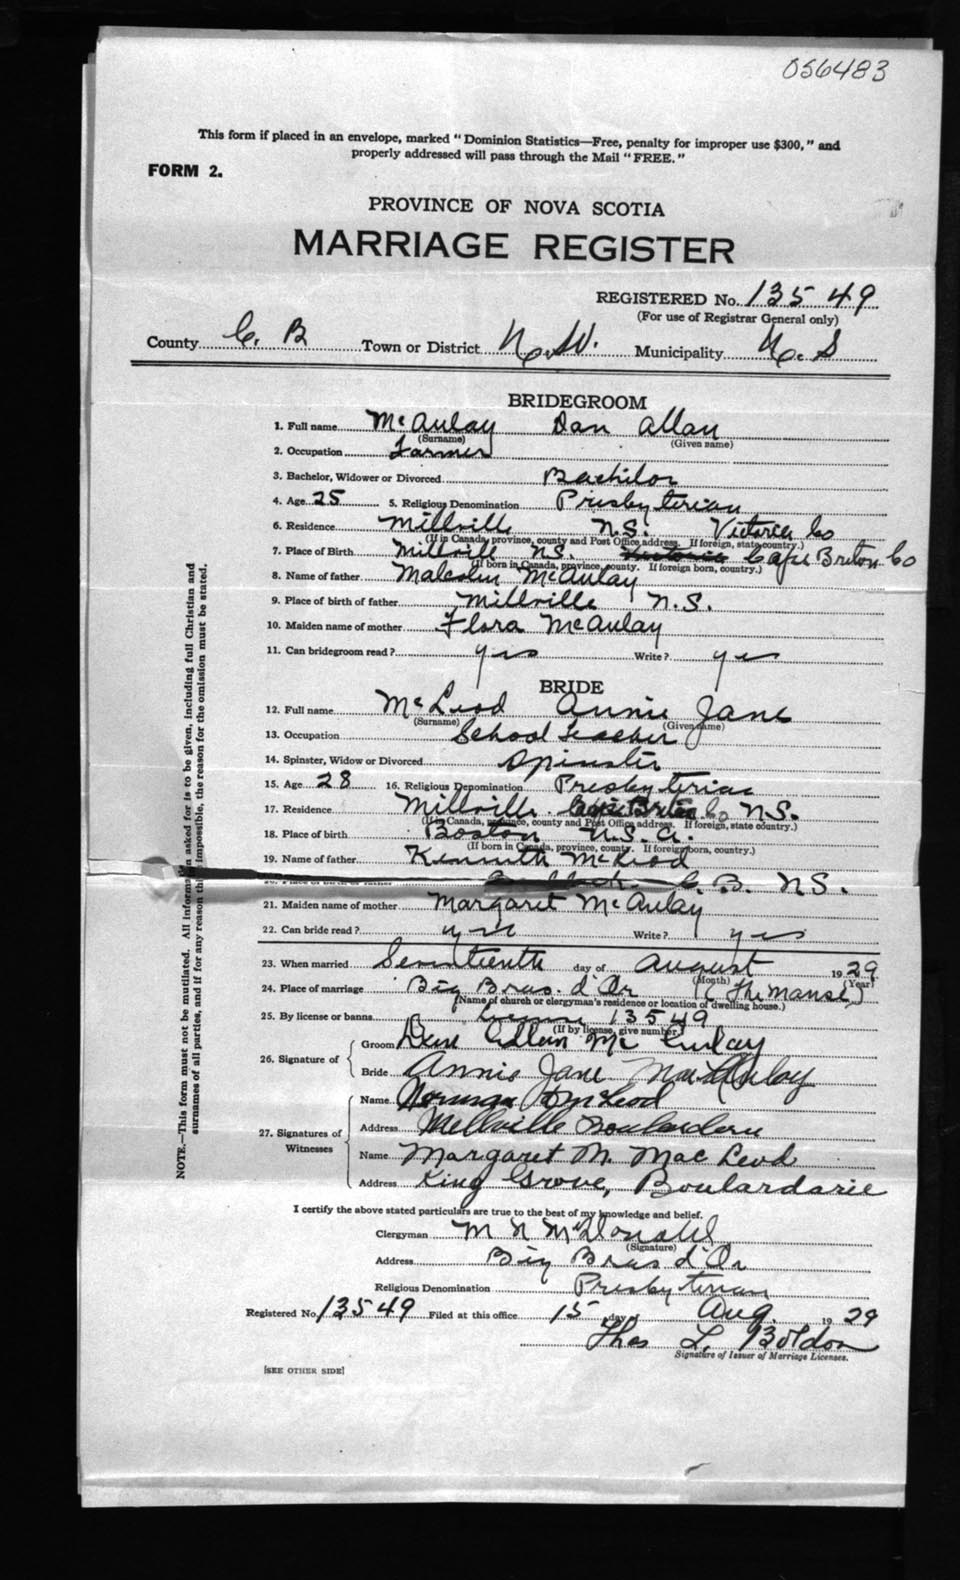 056483
This form if placed in an envelope, marked "Dominion Statistics—Free, penalty for improper use $300," and
properly addressed will pass through the Mail "FREE."
FORM 2.
PROVINCE OF NOVA SCOTIA
MARRIAGE REGISTER
REGISTERED No. 13549
(For use of Registrar General only)
County C. B Town or District N. W. Municipality N. S
BRIDEGROOM
1. Full name McAulay Dan Allan
(Surname) (Given name)
2. Occupation Farmer
3. Bachelor, Widower or Divorced Bachilor
4. Age 25 5. Religious Denomination Presbyterian
6. Residence Millville N.S. Victoria Co
(If in Canada, province, county and Post Office address. If foreign, state country.)
7. Place of Birth Millville N.S. Victoria Cape Breton Co
(If born in Canada, province, county. If foreign born, country.)
8. Name of father Malcolm McAulay
9. Place of birth of father Millville N.S.
10. Maiden name of mother Flora McAulay
11. Can bridegroom read? yes Write? yes
BRIDE
12. Full name McLeod Annie Jane
(Surname) (Given name)
13. Occupation School Teacher
14. Spinster, Widow or Divorced Spinster
15. Age 28 16. Religious Denomination Presbyterian
17. Residence Millville Cape Breton Co N.S.
(If in Canada, province, county and Post Office address. If foreign, state country.)
18. Place of birth Boston U.S.A.
(If born in Canada, province, county. If foreign born, country.)
19. Name of father Kenneth McLeod
20. Place of birth of father C. B. N.S.
21. Maiden name of mother Margaret McAulay
22. Can bride read? yes Write? yes
23. When married Seventeenth day of August 1929
(Month) (Year)
24. Place of marriage Big Bras. d'Or (The Manse)
(Name of church or clergyman's residence or location of dwelling house.)
25. By license or banns license 13549
(If by license, give number.)
26. Signature of Groom Dan Allan McAulay
Bride Annie Jane
27. Signatures of Witnesses Name Norman McLeod
Address Millville Boularderie
Name Margaret M. MacLeod
Address King Grove, Boulardarie
I certify the above stated particulars are true to the best of my knowledge and belief.
Clergyman M N McDonald
(Signature)
Address Big Bras d'Or
Religious Denomination Presbyterian
Registered No. 13549 Filed at this office 15 day of Aug. 1929
Thos L. Boldon
Signature of Issuer of Marriage Licenses.
[SEE OTHER SIDE]
NOTE.—This form must not be mutilated. All information asked for is to be given, including full Christian and
surnames of all parties, and if for any reason this is impossible, the reason for the omission must be stated.